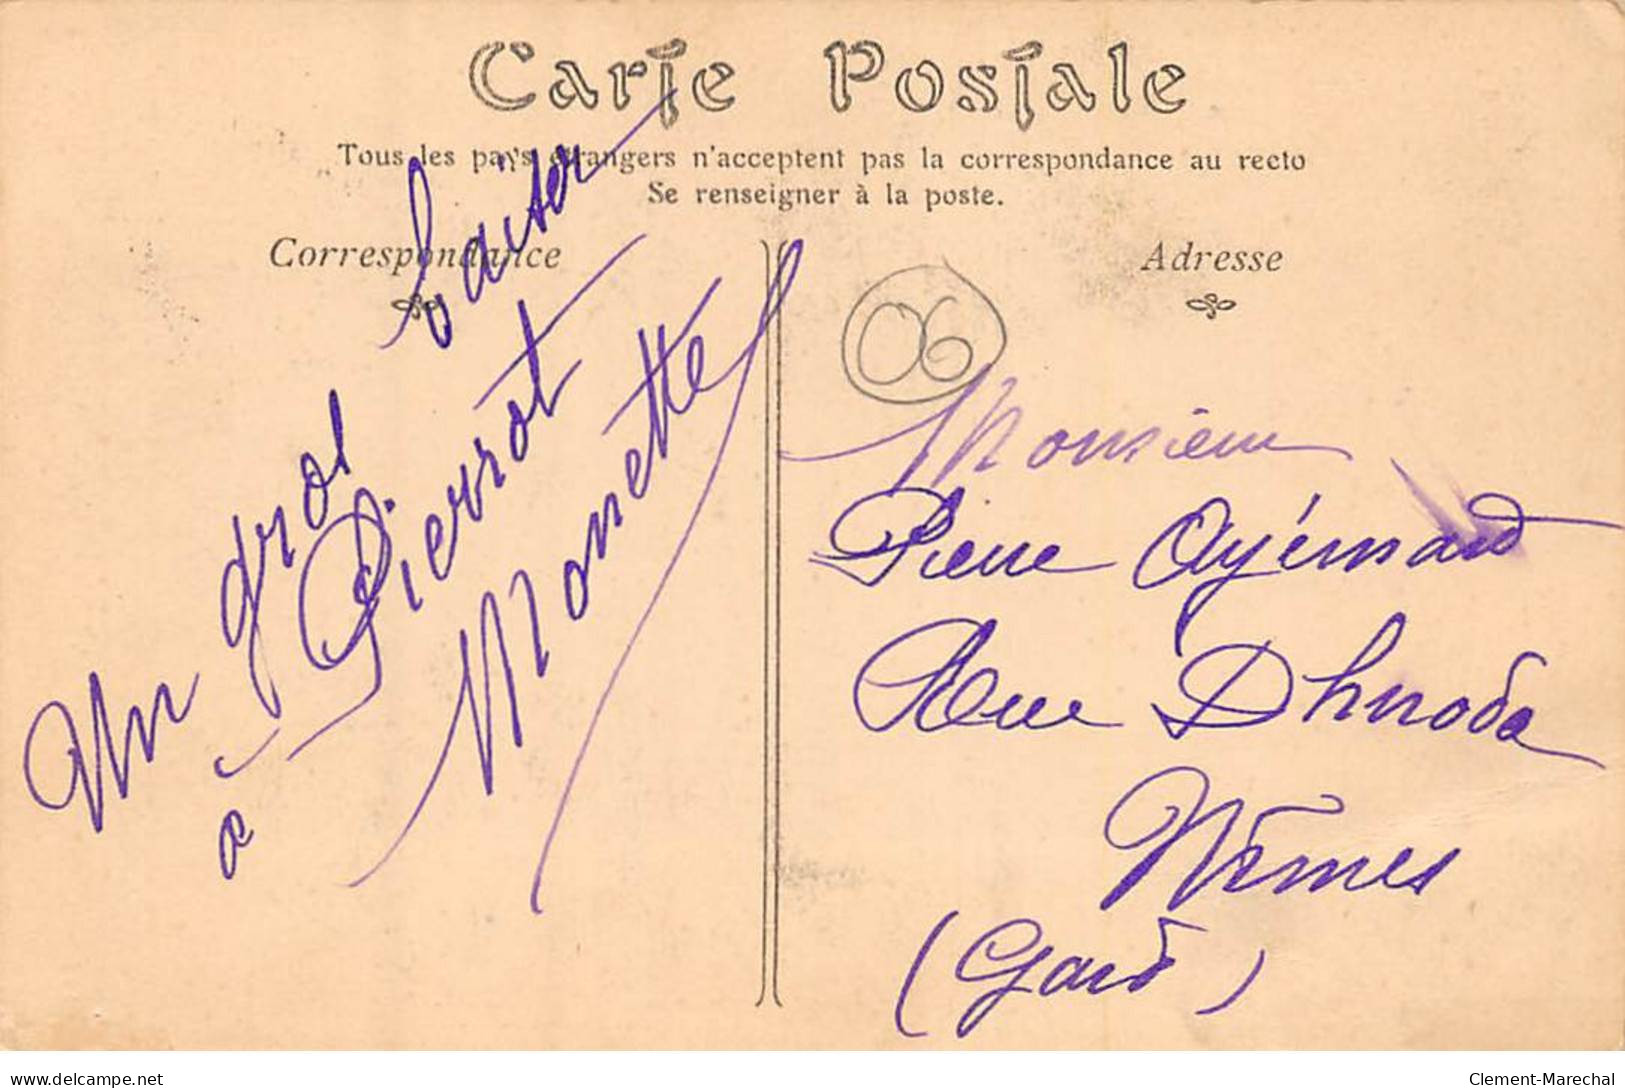 Carte Postale
Tous les pays étrangers n'acceptent pas la correspondance au recto
Se renseigner à la poste.
Correspondance
Adresse
Un gros baiser
à Pierrot
Monette
06
Monsieur
Pierre Ayémard
Rue Dhuoda
Nîmes
(Gard)
delcampe.net
Clement-Marechal